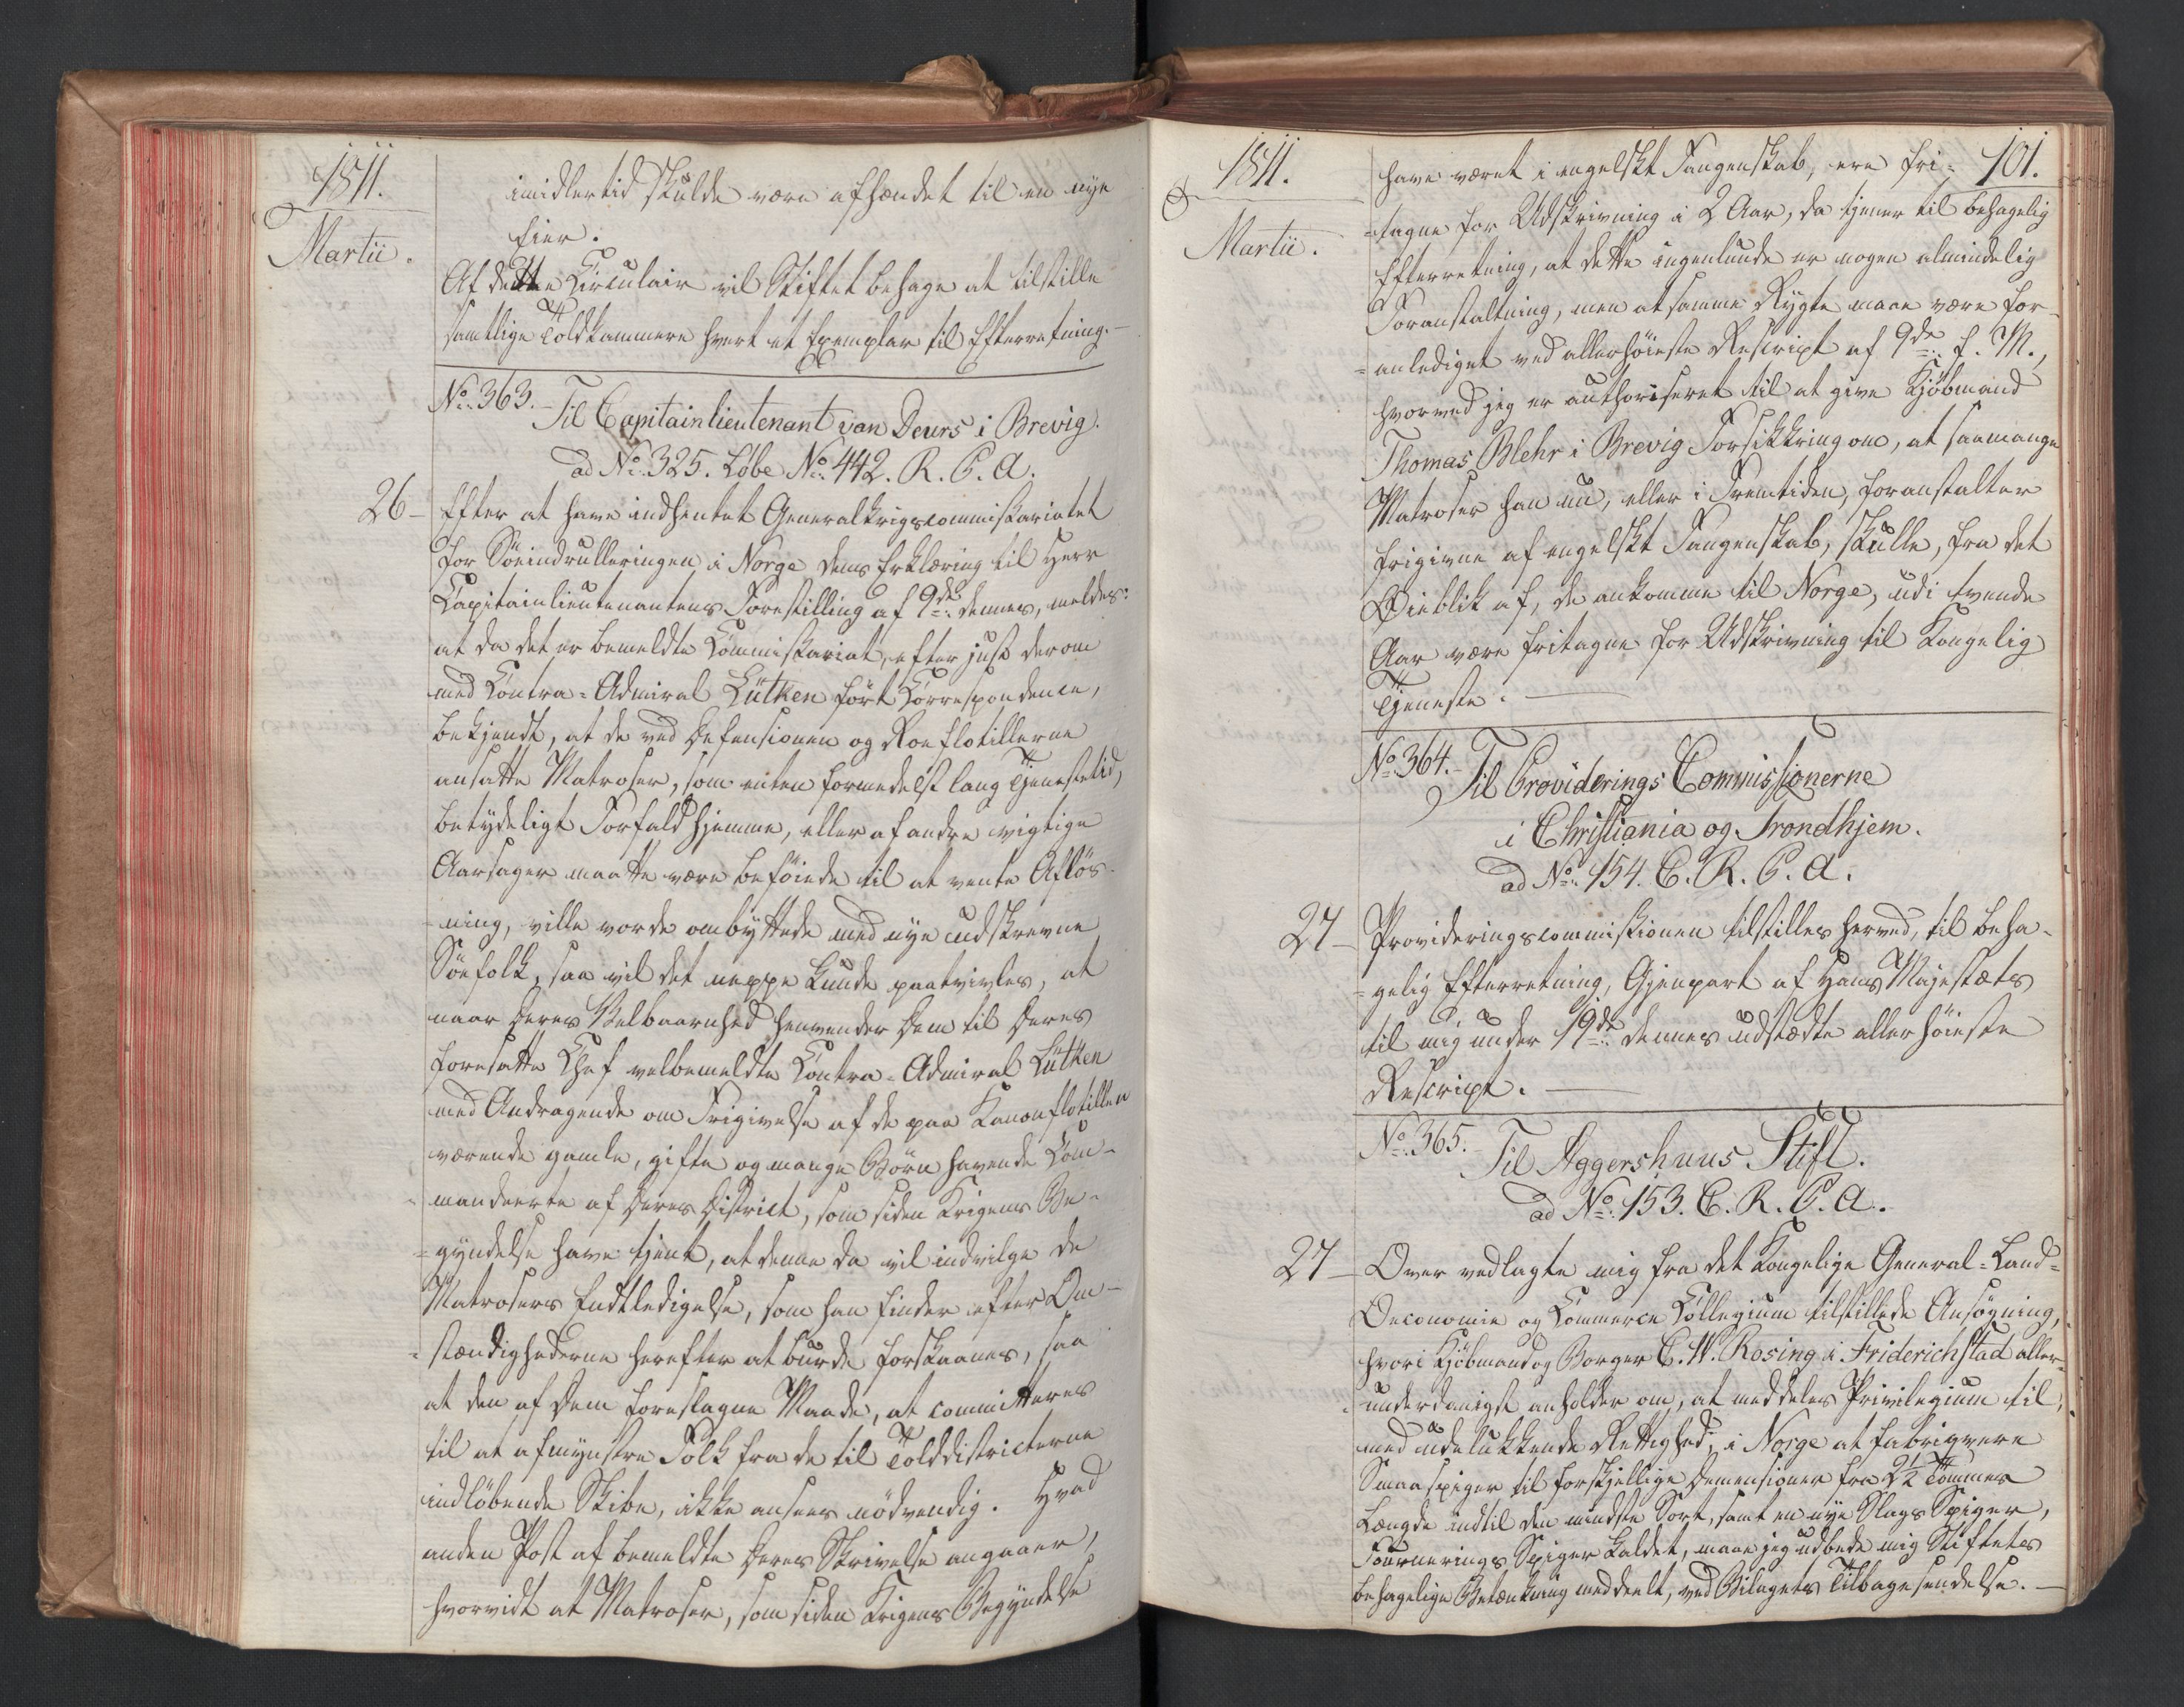 1811.
Martii.
imidlertid skulde være afhændet til en nye
Eier.
Af dette Circulair vil Stiftet behage at tilstille
samtlige Toldkammere hvert et Exemplar til Efterretning.
No. 363. Til Capitainlieutenant van Deurs i Brevig.
ad No. 325. Løbe No. 442. R. P. A.
26 - Efter at have indhentet Generalkrigscommissariatet
for Söeindrulleringen i Norge dens Erklæring til Herr
Capitainlieutenantens Forestilling af 9de dennes, meldes:
at da det er bemeldte Commissariat, efter just derom
med Contra-Admiral Lütken fört Correspondence,
bekjendt, at de ved Defensionen og Roeflotillerne
ansatte Matroser, som enten formedelst lang Tjenestetid,
betydeligt Forfald hjemme, eller af andre vigtige
Aarsager maatte være beföiede til at vente Aflös-
-ning, ville vorde ombyttede med nye udskrevne
Söefolk, saa vil det neppe kunde paatvivles, at
naar Deres Velbaarenhed henvender Dem til Deres
foresatte Chef velbemeldte Contra-Admiral Lütken
med Andragende om Frigivelse af de paa Kanonflotillen
værende gamle, gifte og mange Börn havende Com-
manderte af Deres District, som siden Krigens Be-
=gyndelse have tjent, at denne da vil indvilge de
Matrosers Endtledigelse, som han finder efter Om-
=stændighederne herefter at burde forskaanes, saa
at den af Dem foreslagne Maade, at committeres
til at afmynstre Folk fra de til Tolddistricterne
indlöbende Skibe, ikke ansees nödvendig. Hvad
anden Post af bemeldte Deres Skrivelse angaaer,
hvorvidt at Matroser, som siden Krigens Begyndelse
1811.
Martii.
101.
have været i engelskt Fangenskab, ere fri-
-tagne for Udskrivning i 2 Aar, da tjener til behagelig
Efterretning, at dette ingenlunde er nogen almindelig
Foranstaltning, men at samme Rygte maae være for-
=anlediget ved allerhöieste Rescript af 9de f. M.,
hvorved jeg er authoriseret til at give Kjöbmand
Thomas Blehr i Brevig Forsikkring om, at saamange
Matroser han nu, eller i Fremtiden, foranstalter
frigivne af engelskt Fangenskab, skulle, fra det
Öieblik af, de ankomme til Norge, udi tvende
Aar være fritagne for Udskrivning til Kongelig
Tjeneste.
No. 364. Til Providerings Commissionerne
i Christiania og Trondhjem.
ad No. 154. C. R. P. A.
27 - Provideringscommissionen tilstilles herved, til beha-
=gelig Efterretning, Gjenpart af Hans Majestæts
til mig under 19de dennes udstædte allerhöieste
Rescript.
No. 365. Til Aggershuus Stift.
ad No. 153. C. R. P. A.
27 - Over vedlagte mig fra det Kongelige General-Land-
Oeconomie og Commerce Collegium tilstillede Ansögning,
hvori Kjöbmand og Borger C. W. Rosing i Friderichstad aller-
=underdanigst anholder om, at meddeles Privilegium til,
med udelukkende Rettighed, i Norge at fabriqvere
Smaaspiger til forskjellige Demensioner fra 2½ Tommes
Længde indtil den mindste Sort, samt en nye Slags Spiger,
Fournerings Spiger kaldet, maae jeg udbede mig Stiftets
behagelige Betænkning meddeelt, ved Bilagets Tilbagesendelse.